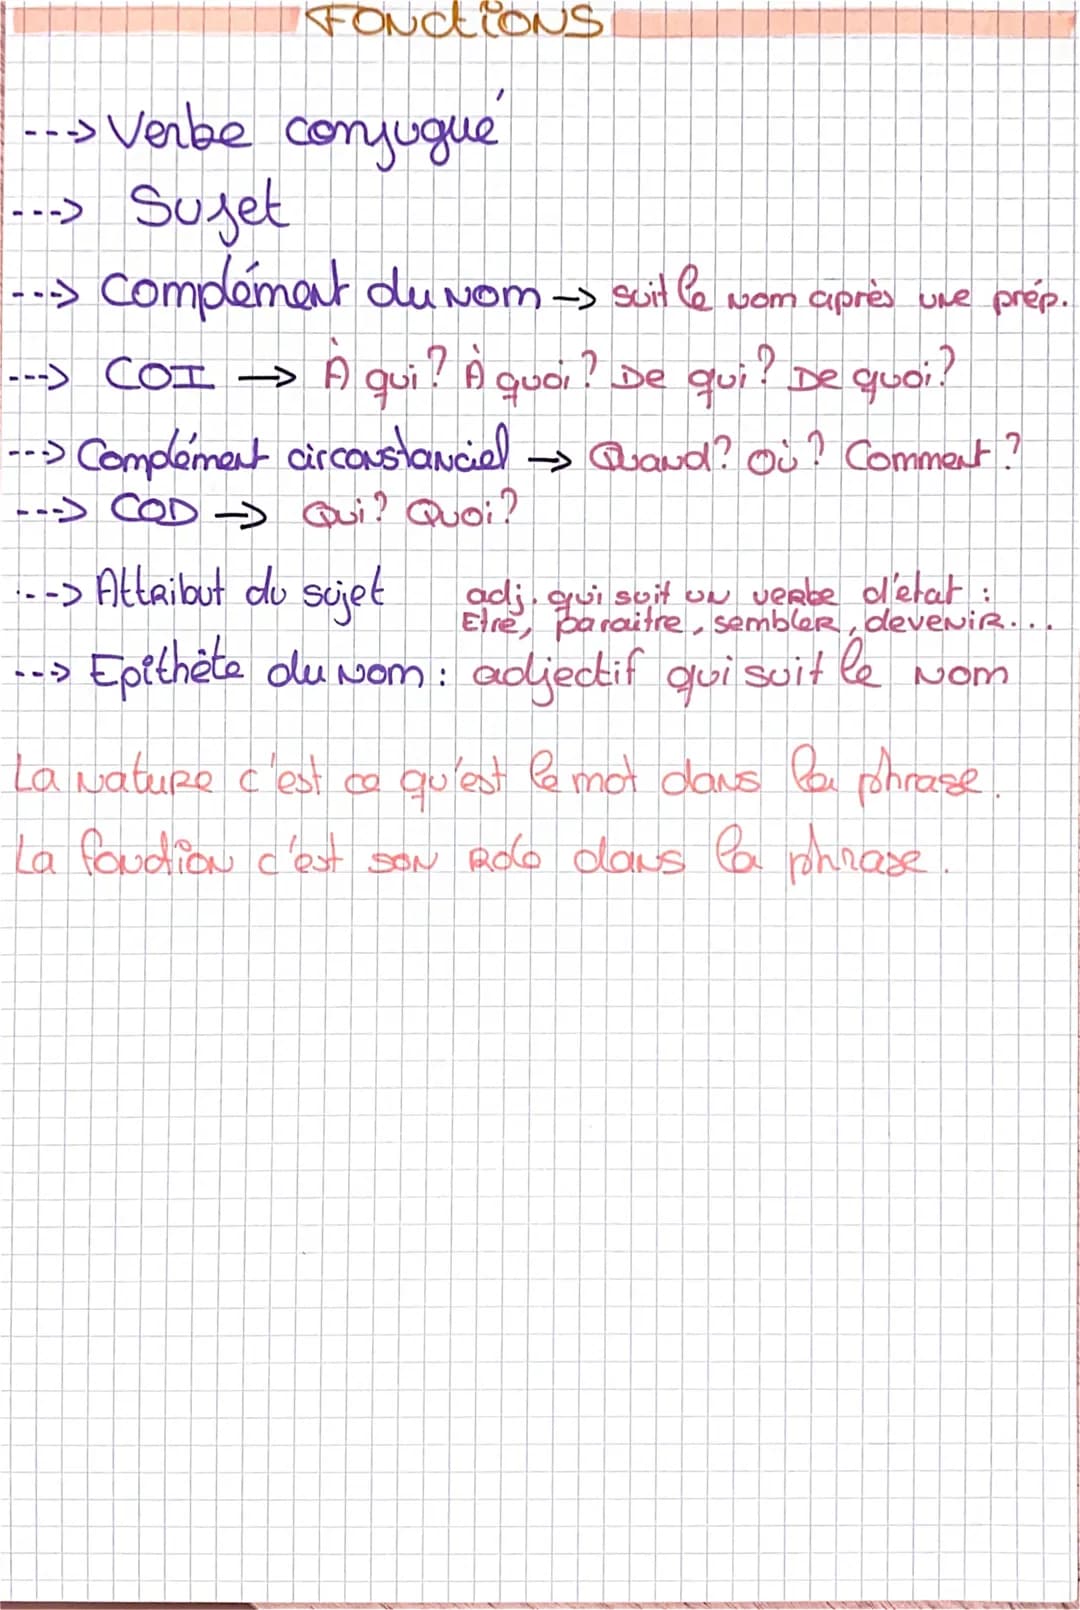 FONctiONS
---> Verbe conjugué
---> Sujet
---> Complément du nom -> suit le nom après une prép.
---> COI -> À qui? À quoi? De qui? De quoi?
---> Complément circonstanciel -> Quand? Où? Comment?
---> COD -> Qui? Quoi?
---> Attribut du sujet adj. qui suit un verbe d'état :
Etre, paraitre, sembler, devenir...
---> Epithète du nom : adjectif qui suit le nom
La nature c'est ce qu'est le mot dans la phrase.
La fonction c'est son role dans la phrase.